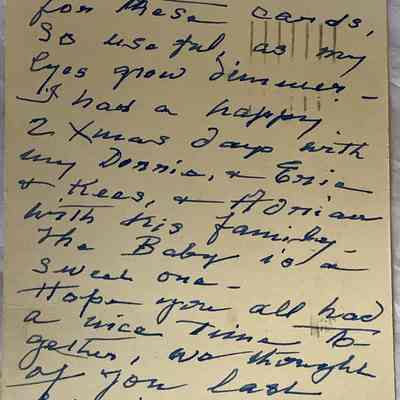 for these cards,
so useful, as my
eyes grow dimmer -
I had a happy
2 Xmas days with
my Donnie, & Erie
& Kees, & Adriaan
with his family -
The Baby is a
sweet one -
Hope you all had
a nice time to-
gether, we thought
of you last